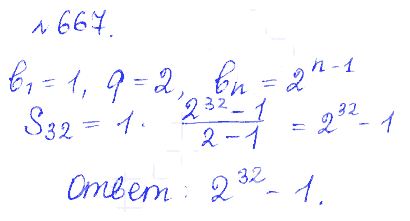 № 667.
b₁ = 1, q = 2, bₙ = 2ⁿ⁻¹
S₃₂ = 1 · (2³² - 1)/(2 - 1) = 2³² - 1
Ответ: 2³² - 1.